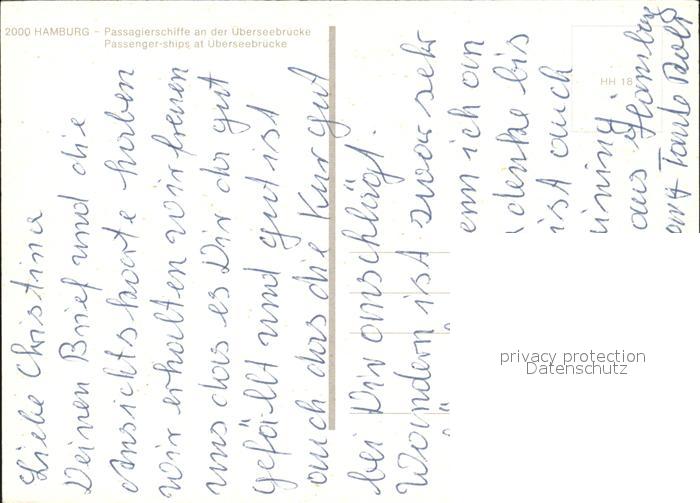 2000 HAMBURG - Passagierschiffe an der Überseebrücke
Passenger-ships at Überseebrücke
HH 18
Liebe Christina
Deinen Brief und die
Ansichtskarte haben
wir erhalten wir freuen
uns das es Dir da gut
gefällt und gut ist
auch das die Kur gut
bei Dir anschlägt.
Wandern ist zwar sehr
enn ich an
denke bis
ist auch
ining
aus Hamburg
Tante Rolf
privacy protection
Datenschutz